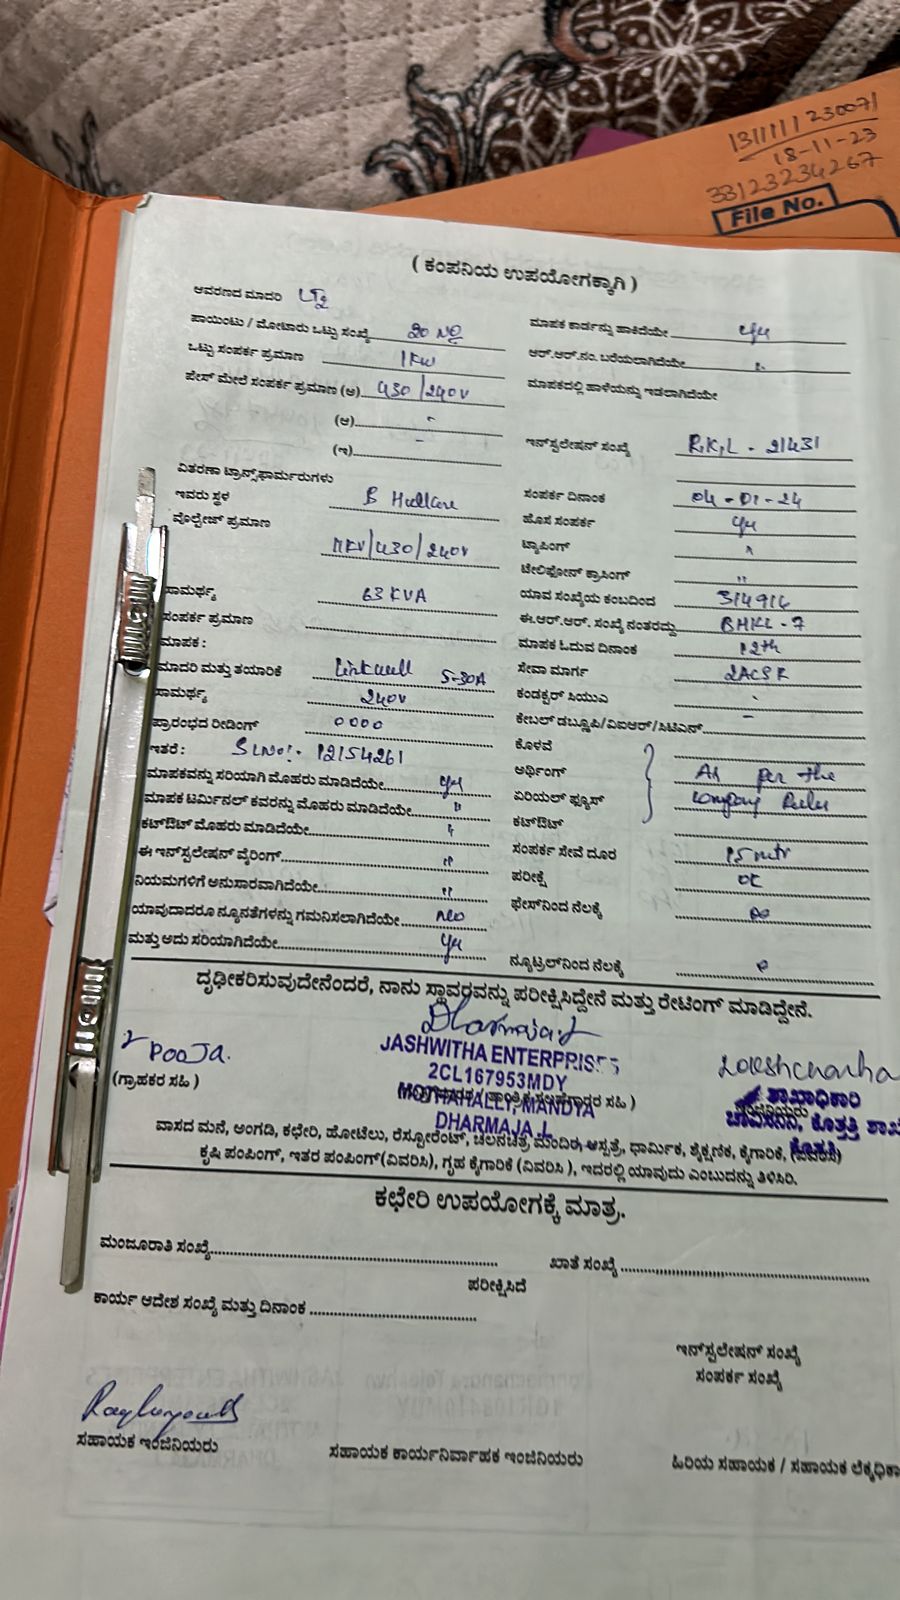 131111123007/
18-11-23
33123234267
File No.
( ಕಂಪನಿಯ ಉಪಯೋಗಕ್ಕಾಗಿ )
ಆವರಣದ ಮಾದರಿ LT2
ಪಾಯಿಂಟು / ಮೋಟಾರು ಒಟ್ಟು ಸಂಖ್ಯೆ 20 No ಮಾಪಕ ಕಾರ್ಡನ್ನು ಹಾಕಿದೆಯೇ
ಒಟ್ಟು ಸಂಪರ್ಕ ಪ್ರಮಾಣ 1KW ಆರ್.ಆರ್.ನಂ. ಬರೆಯಲಾಗಿದೆಯೇ "
ಪೇಸ್ ಮೇಲೆ ಸಂಪರ್ಕ ಪ್ರಮಾಣ (ಅ) 430/240V ಮಾಪಕದಲ್ಲಿ ಹಾಳೆಯನ್ನು ಇಡಲಾಗಿದೆಯೇ
(ಆ) -
(ಇ) - ಇನ್‌ಸ್ಟಲೇಷನ್ ಸಂಖ್ಯೆ RKL - 21431
ವಿತರಣಾ ಟ್ರಾನ್ಸ್‌ಫಾರ್ಮರುಗಳು
ಇವರು ಸ್ಥಳ B ಸಂಪರ್ಕ ದಿನಾಂಕ 04-01-24
ವೊಲ್ಟೇಜ್ ಪ್ರಮಾಣ ಹೊಸ ಸಂಪರ್ಕ
11KV/430/240V ಟ್ಯಾಪಿಂಗ್ "
ಟೇಲಿಫೋನ್ ಕ್ರಾಸಿಂಗ್ "
ಸಾಮರ್ಥ್ಯ 63 KVA ಯಾವ ಸಂಖ್ಯೆಯ ಕಂಬದಿಂದ 3/49/6
ಸಂಪರ್ಕ ಪ್ರಮಾಣ ಈ.ಆರ್.ಆರ್. ಸಂಖ್ಯೆ ನಂತರದ್ದು BHKL - 7
ಮಾಪಕ : ಮಾಪಕ ಓದುವ ದಿನಾಂಕ 12th
ಮಾದರಿ ಮತ್ತು ತಯಾರಿಕೆ Linkwell 5-30A ಸೇವಾ ಮಾರ್ಗ 2ACSR
ಸಾಮರ್ಥ್ಯ 240V ಕಂಡಕ್ಟರ್ ಸಿಯುಎ -
ಪ್ರಾರಂಭದ ರೀಡಿಂಗ್ 0000 ಕೇಬಲ್ ಡಬ್ಲೂಪಿ/ವಿಐಆರ್/ಸಿಟಿಎನ್ -
ಇತರೆ : SLNo:- 12154261 ಕೊಳವೆ
ಮಾಪಕವನ್ನು ಸರಿಯಾಗಿ ಮೊಹರು ಮಾಡಿದೆಯೇ ಆರ್ಥಿಂಗ್ As per the
ಮಾಪಕ ಟರ್ಮಿನಲ್ ಕವರನ್ನು ಮೊಹರು ಮಾಡಿದೆಯೇ " ಏರಿಯಲ್ ಫ್ಯೂಸ್ company Rules
ಕಟ್‌ಔಟ್ ಮೊಹರು ಮಾಡಿದೆಯೇ " ಕಟ್‌ಔಟ್
ಈ ಇನ್‌ಸ್ಟಲೇಷನ್ ವೈರಿಂಗ್ " ಸಂಪರ್ಕ ಸೇವೆ ದೂರ 15 mtr
ನಿಯಮಗಳಿಗೆ ಅನುಸಾರವಾಗಿದೆಯೇ " ಪರೀಕ್ಷೆ OK
ಯಾವುದಾದರೂ ನ್ಯೂನತೆಗಳನ್ನು ಗಮನಿಸಲಾಗಿದೆಯೇ No ಫೇಸ್‌ನಿಂದ ನೆಲಕ್ಕೆ
ಮತ್ತು ಅದು ಸರಿಯಾಗಿದೆಯೇ ನ್ಯೂಟ್ರಲ್‌ನಿಂದ ನೆಲಕ್ಕೆ
ದೃಢೀಕರಿಸುವುದೇನೆಂದರೆ, ನಾನು ಸ್ಥಾವರವನ್ನು ಪರೀಕ್ಷಿಸಿದ್ದೇನೆ ಮತ್ತು ರೇಟಿಂಗ್ ಮಾಡಿದ್ದೇನೆ.
Dharmaja.L
POOJA. JASHWITHA ENTERPRISES Lokeshchandra
2CL167953MDY
(ಗ್ರಾಹಕರ ಸಹಿ ) MOTHAHALLY, MANDYA ಸಹಿ ) ಶಾಖಾಧಿಕಾರಿ
DHARMAJA .L ಚಾವಿಸನಿನಿ, ಕೊತ್ತತ್ತಿ ಶಾಖೆ
ಕೊತ್ತತ್ತಿ
ವಾಸದ ಮನೆ, ಅಂಗಡಿ, ಕಛೇರಿ, ಹೋಟೆಲು, ರೆಸ್ಟೋರೆಂಟ್, ಚಲನಚಿತ್ರ ಮಂದಿರ, ಆಸ್ಪತ್ರೆ, ಧಾರ್ಮಿಕ, ಶೈಕ್ಷಣಿಕ, ಕೈಗಾರಿಕೆ, (ವಿವರಿಸಿ)
ಕೃಷಿ ಪಂಪಿಂಗ್, ಇತರ ಪಂಪಿಂಗ್(ವಿವರಿಸಿ), ಗೃಹ ಕೈಗಾರಿಕೆ (ವಿವರಿಸಿ ), ಇದರಲ್ಲಿ ಯಾವುದು ಎಂಬುದನ್ನು ತಿಳಿಸಿರಿ.
ಕಛೇರಿ ಉಪಯೋಗಕ್ಕೆ ಮಾತ್ರ.
ಮಂಜೂರಾತಿ ಸಂಖ್ಯೆ ಖಾತೆ ಸಂಖ್ಯೆ
ಪರೀಕ್ಷಿಸಿದೆ
ಕಾರ್ಯ ಆದೇಶ ಸಂಖ್ಯೆ ಮತ್ತು ದಿನಾಂಕ
ಇನ್‌ಸ್ಟಲೇಷನ್ ಸಂಖ್ಯೆ
ಸಂಪರ್ಕ ಸಂಖ್ಯೆ
ಸಹಾಯಕ ಇಂಜಿನಿಯರು ಸಹಾಯಕ ಕಾರ್ಯನಿರ್ವಾಹಕ ಇಂಜಿನಿಯರು ಹಿರಿಯ ಸಹಾಯಕ / ಸಹಾಯಕ ಲೆಕ್ಕಧಿಕಾ